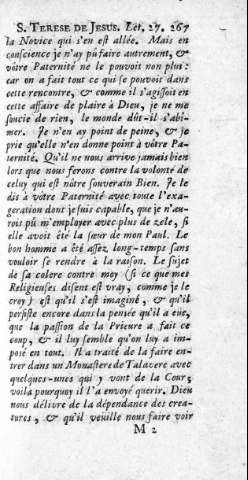 S. TERESE DE JESUS. Let. 27. 267
la Novice qui s'en est allée. Mais en
conscience je n'ay pû faire autrement, &
vôtre Paternité ne le pouvoit non plus:
car on a fait tout ce qui se pouvoit dans
cette rencontre, & comme il s'agissoit en
cette affaire de plaire à Dieu, je ne me
soucie de rien, le monde dût-il s'abî-
mer. Je n'en ay point de peine, & je
prie qu'elle n'en donne point à vôtre Pa-
ternité. Qu'il ne nous arrive jamais bien
lors que nous ferons contre la volonté de
celuy qui est nôtre souverain Bien. Je le
dis à vôtre Paternité avec toute l'exa-
geration dont je suis capable, que je n'au-
rois pû m'employer avec plus de zele, si
elle avoit été la sœur de mon Paul. Le
bon homme a été assez long-temps sans
vouloir se rendre à la raison. Le sujet
de sa colere contre moy (si ce que mes
Religieuses disent est vray, comme je le
croy) est qu'il s'est imaginé, & qu'il
persiste encore dans la pensée qu'il a eüe,
que la passion de la Prieure a fait ce
coup, & il luy semble qu'on luy a im-
posé en tout. Il a traité de la faire en-
trer dans un Monastere de Talavere avec
quelques-unes qui y vont de la Cour;
voila pourquoy il l'a envoyé querir. Dieu
nous délivre de la dépendance des crea-
tures, & qu'il veüille nous faire voir
M 2